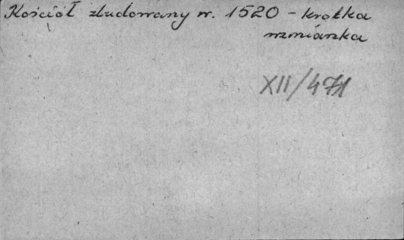 Kościół zbudowany w. 1520 - krótka
wzmianka
XII/471